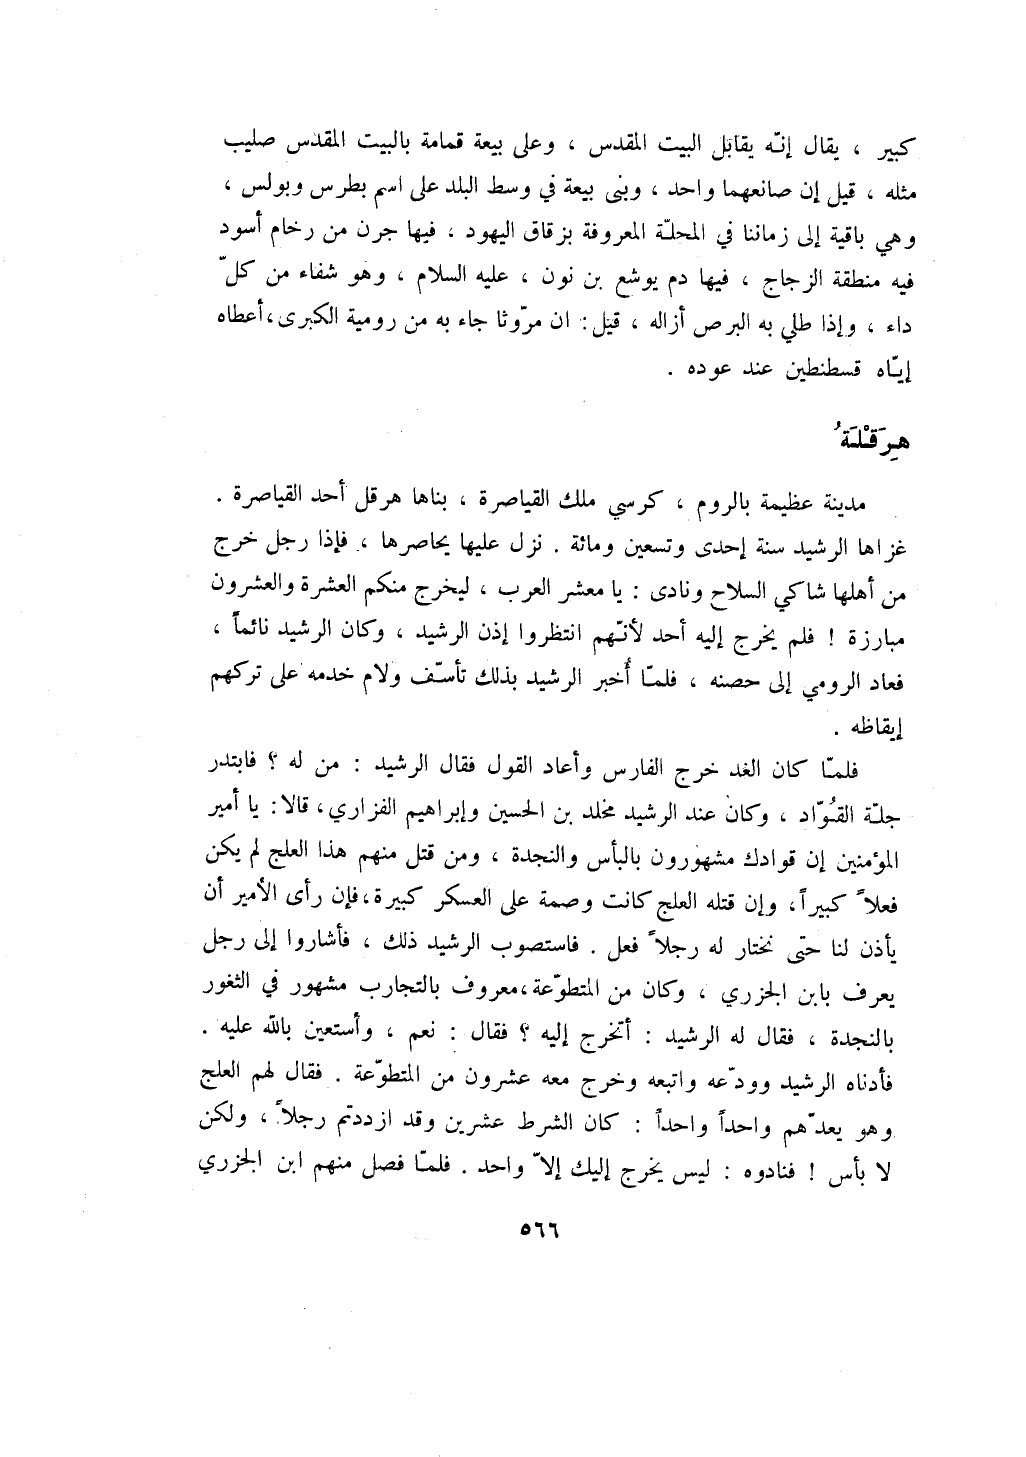 كبير ، يقال إنّه يقابل البيت المقدس ، وعلى بيعة قمامة بالبيت المقدس صليب
مثله ، قيل إن صانعهما واحد ، وبنى بيعة في وسط البلد على اسم بطرس وبولس ،
وهي باقية إلى زماننا في المحلّة المعروفة بزقاق اليهود ، فيها جرن من رخام أسود
فيه منطقة الزجاج ، فيها دم يوشع بن نون ، عليه السلام ، وهو شفاء من كلّ
داء ، وإذا طلي به البرص أزاله ، قيل : ان مرّوثا جاء به من رومية الكبرى، أعطاه
إيّاه قسطنطين عند عوده .
هِرَقْلَةُ
مدينة عظيمة بالروم ، كرسي ملك القياصرة ، بناها هرقل أحد القياصرة .
غزاها الرشيد سنة إحدى وتسعين ومائة . نزل عليها يحاصرها ، فإذا رجل خرج
من أهلها شاكي السلاح ونادى : يا معشر العرب ، ليخرج منكم العشرة والعشرون
مبارزة ! فلم يخرج إليه أحد لأنّهم انتظروا إذن الرشيد ، وكان الرشيد نائماً ،
فعاد الرومي إلى حصنه ، فلمّا أُخبر الرشيد بذلك تأسّف ولام خدمه على تركهم
إيقاظه .
فلمّا كان الغد خرج الفارس وأعاد القول فقال الرشيد : من له ؟ فابتدر
جلّة القُوّاد ، وكان عند الرشيد مخلد بن الحسين وإبراهيم الفزاري ، قالا : يا أمير
المؤمنين إن قوادك مشهورون بالبأس والنجدة ، ومن قتل منهم هذا العلج لم يكن
فعلاً كبيراً ، وإن قتله العلج كانت وصمة على العسكر كبيرة ، فإن رأى الأمير أن
يأذن لنا حتّى نختار له رجلاً فعل . فاستصوب الرشيد ذلك ، فأشاروا إلى رجل
يعرف بابن الجزري ، وكان من المتطوّعة ، معروف بالتجارب مشهور في الثغور
بالنجدة ، فقال له الرشيد : أتخرج إليه ؟ فقال : نعم ، وأستعين بالله عليه .
فأدناه الرشيد وودّعه واتبعه وخرج معه عشرون من المتطوّعة . فقال لهم العلج
وهو يعدّهم واحداً واحداً : كان الشرط عشرين وقد ازددتم رجلاً ، ولكن
لا بأس ! فنادوه : ليس يخرج إليك إلاّ واحد . فلمّا فصل منهم ابن الجزري
٥٦٦